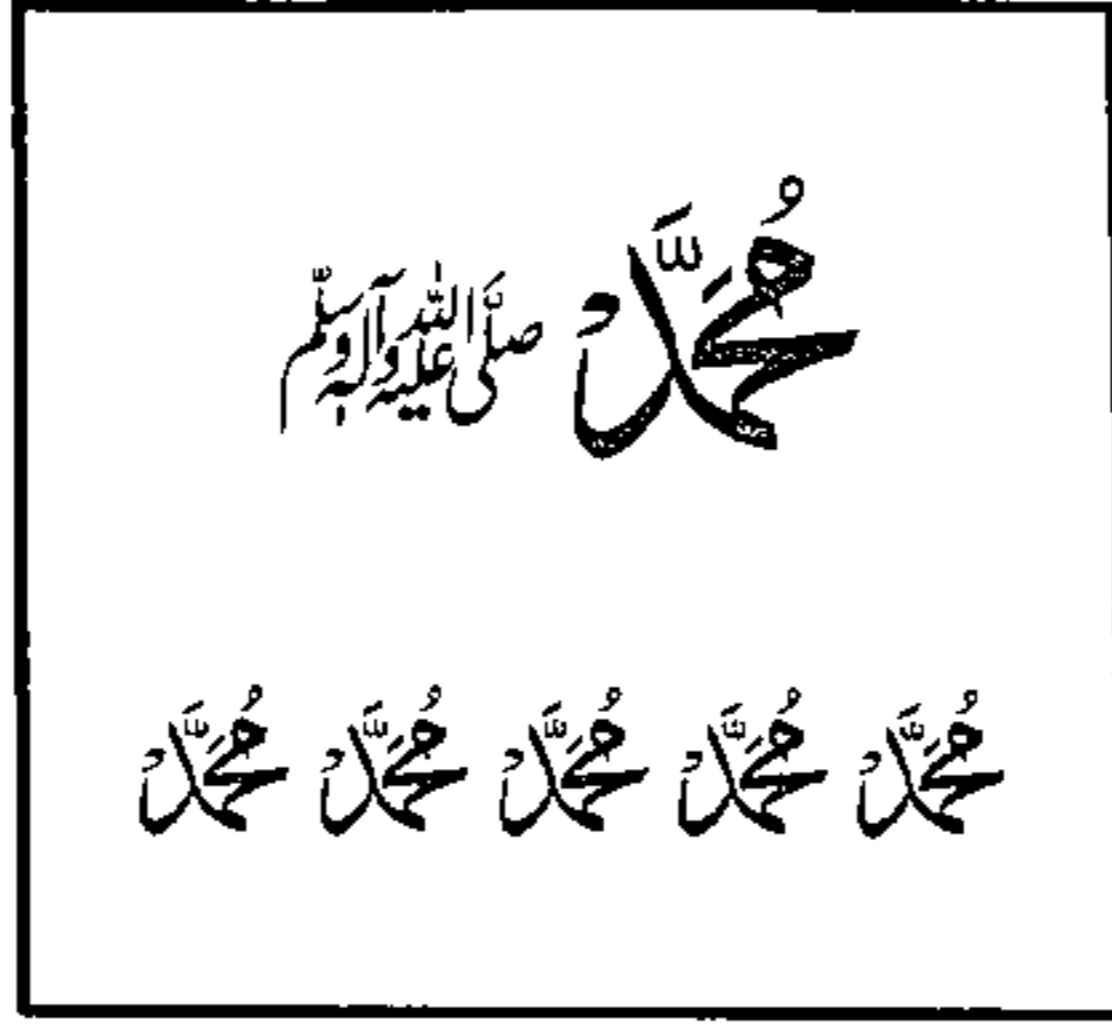 مُحَمَّدْ صَلَّى اللّٰهُ عَلَيْهِ وَآلِهٖ وَسَلَّم
مُحَمَّدْ مُحَمَّدْ مُحَمَّدْ مُحَمَّدْ مُحَمَّدْ